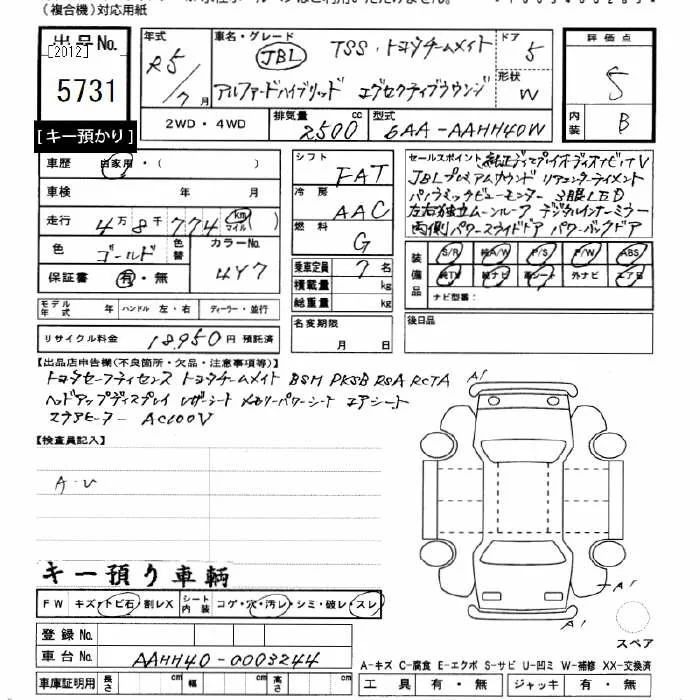 (複合機)対応用紙
出品No. [2012] 5731
[キー預かり]
年式 R5/7月
車名・グレード JBL TSS・トヨタチームメイト
アルファードハイブリッド エグゼクティブラウンジ
ドア 5
形状 W
評価点 5
内装 B
2WD・4WD
排気量 2500 cc
型式 6AA-AAHH40W
車歴 自家用・( )
車検 年 月
走行 4万8千774 km マイル
色 ゴールド 色替 カラーNo. 4Y7
保証書 有・無
モデル年式 年 ハンドル 左・右 ディーラー・並行
リサイクル料金 18950円 預託済
シフト FAT
冷房 AAC
燃料 G
乗車定員 7名
積載量 kg
総重量 kg
名変期限 月 日
セールスポイント 純正ディスプレイオーディオナビTV
JBLプレミアムサウンド リアエンターテイメント
パノラミックビューモニター 3眼LED
左右独立ムーンルーフ デジタルインナーミラー
両側パワースライドドア パワーバックドア
装備品 S/R 純A/W P/S P/W ABS
純TV 純ナビ 革シート 外ナビ エアB
ナビ型番:
後日品
【出品店申告欄(不良箇所・欠品・注意事項等)】
トヨタセーフティセンス トヨタチームメイト BSM PKSB RSA RCTA
ヘッドアップディスプレイ レザーシート メモリーパワーシート エアシート
AC100V
【検査員記入】
A・U
キー預り車輌
FW キズ・トビ石・割レX シート内装 コゲ・穴・汚レ・シミ・破レ・スレ
登録No.
車台No. AAHH40-0003244
車庫証明用 長さ cm 幅 cm 高さ cm
A1
A1
A1
スペア
A-キズ C-腐食 E-エクボ S-サビ U-凹ミ W-補修 XX-交換済
工具 有・無 ジャッキ 有・無